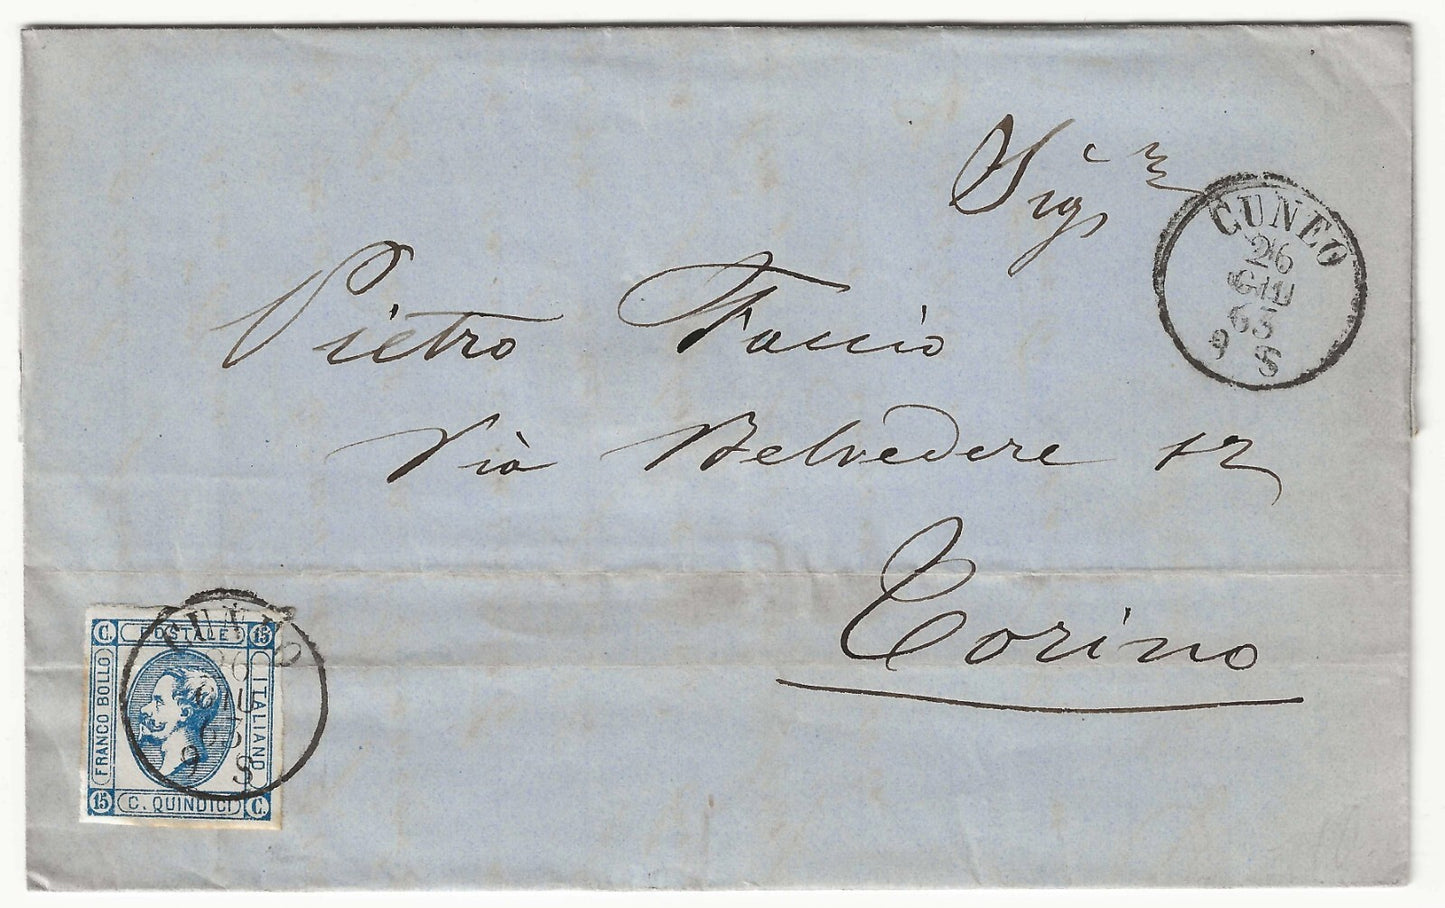 Sig.r
CUNEO
26
GIU
63
9 S
Pietro Faccio
Via Belvedere 12
Torino
CUNEO
26
GIU
63
9 S
C. POSTALE 15
FRANCO BOLLO
ITALIANO
15 C. QUINDICI C.